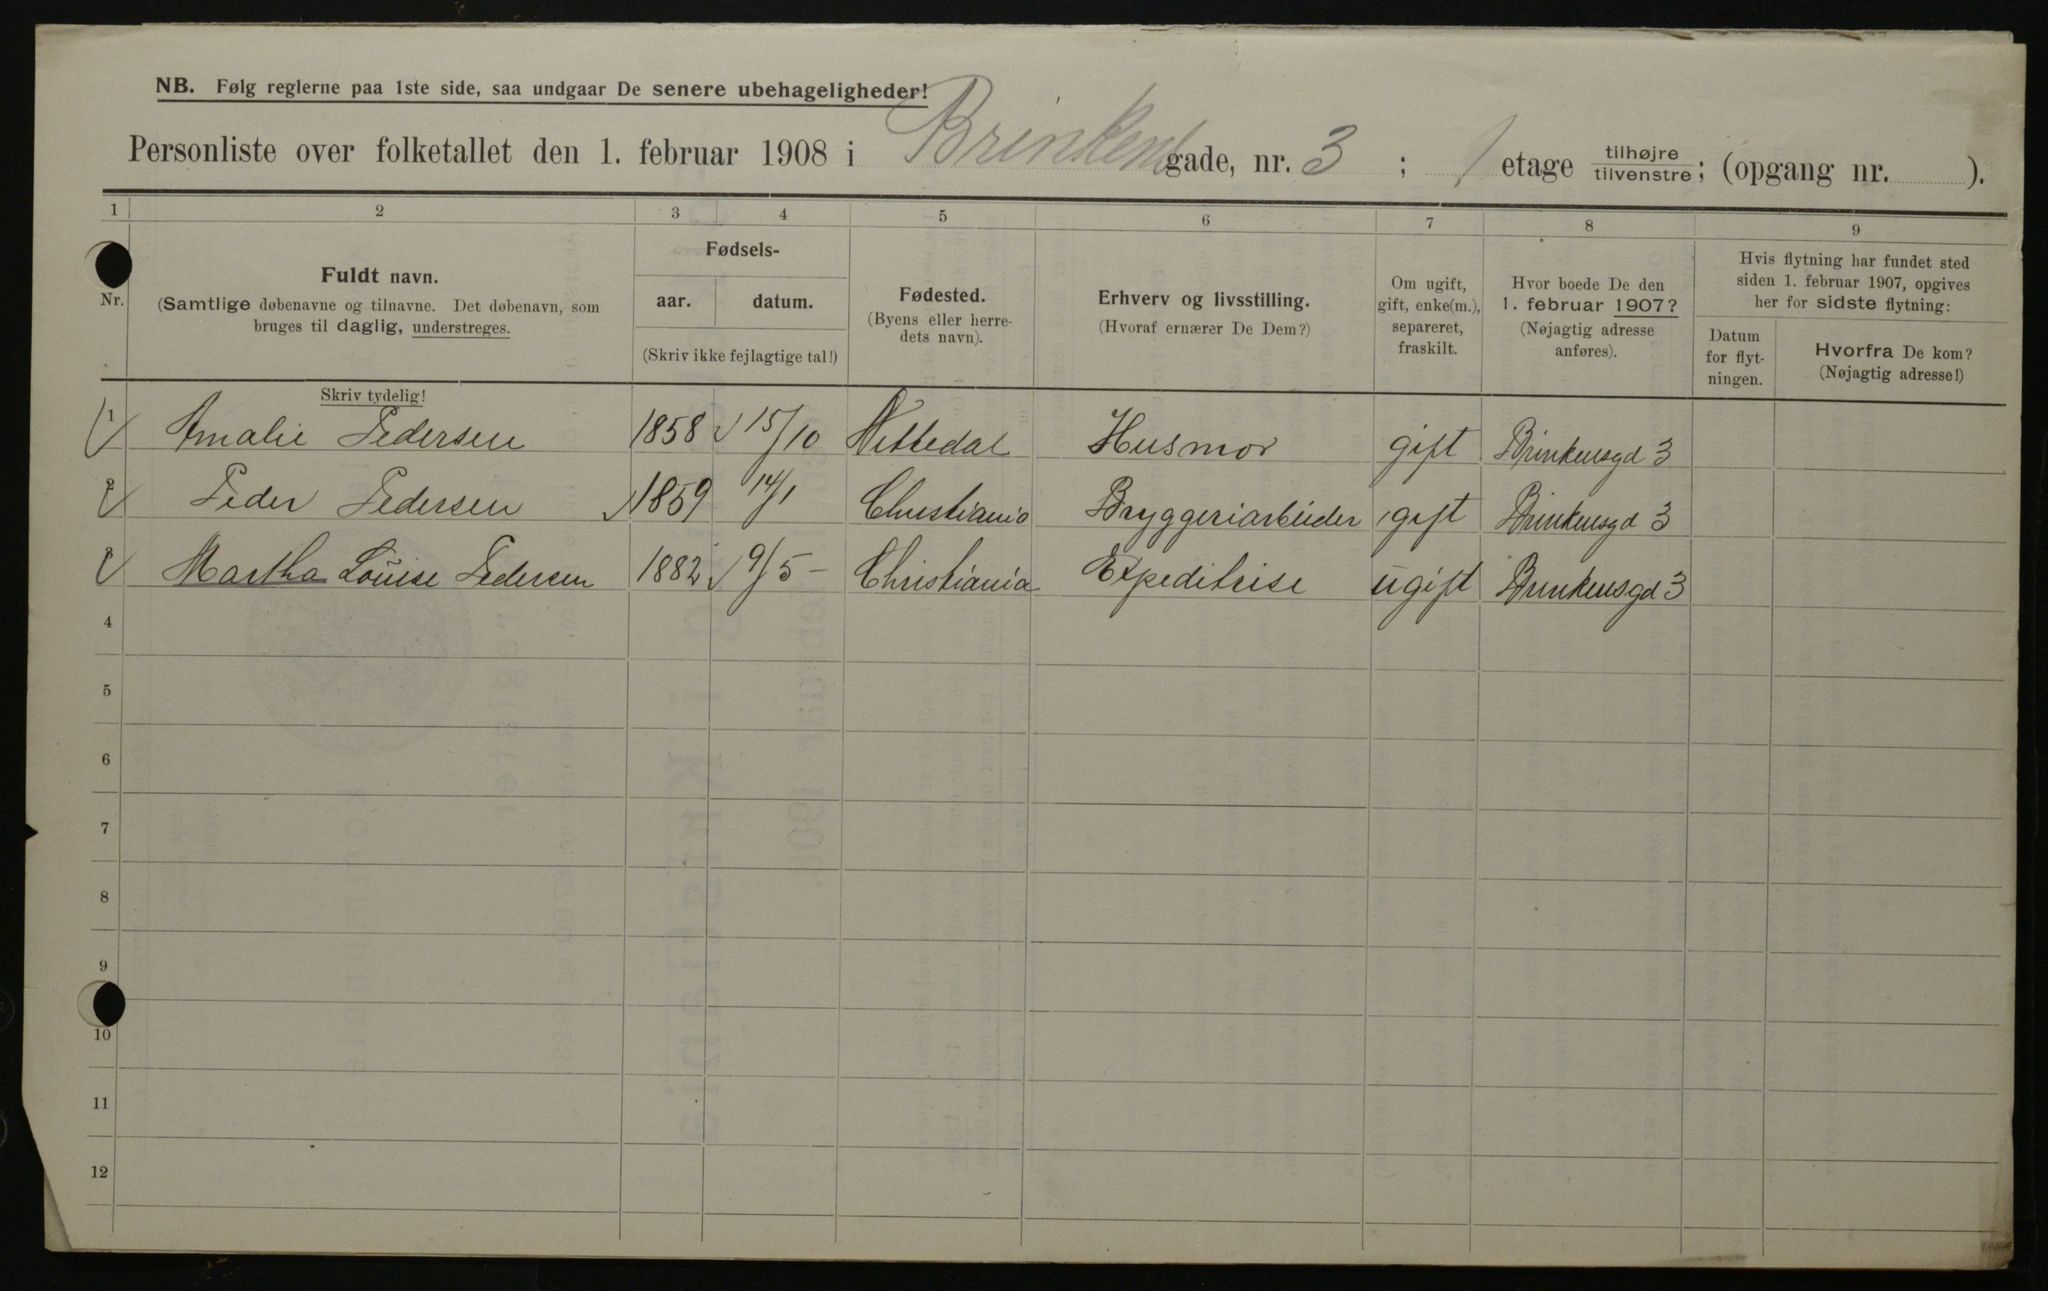 NB. Følg reglerne paa 1ste side, saa undgaar De senere ubehageligheder!
Personliste over folketallet den 1. februar 1908 i Brinkens gade, nr. 3 ; 1 etage tilhøjre tilvenstre; (opgang nr. ).
1 2 3 4 5 6 7 8 9
Nr.
Fuldt navn.
(Samtlige døbenavne og tilnavne. Det døbenavn, som
bruges til daglig, understreges.
Skriv tydelig!
Fødsels-
aar. datum.
(Skriv ikke fejlagtige tal!)
Fødested.
(Byens eller herre-
dets navn).
Erhverv og livsstilling.
(Hvoraf ernærer De Dem?)
Om ugift,
gift, enke(m.),
separeret,
fraskilt.
Hvor boede De den
1. februar 1907?
(Nøjagtig adresse
anføres).
Hvis flytning har fundet sted
siden 1. februar 1907, opgives
her for sidste flytning:
Datum
for flyt-
ningen.
Hvorfra De kom?
(Nøjagtig adresse!)
1 Amalie Pedersen 1858 15/10 Nittedal Husmor gift Brinkensgd 3
2 Peder Pedersen 1859 14/1 Christiania Bryggeriarbeider gift Brinkensgd 3
3 Martha Louise Pedersen 1882 9/5 – Christiania Expeditrise ugift Brinkensgd 3
4
5
6
7
8
9
10
11
12